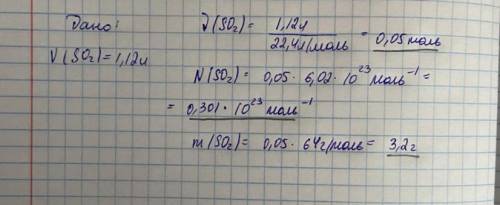 Дано:
V(SO₂)=1,12л
ν(SO₂)= 1,12л / 22,4л/моль = 0,05 моль
N(SO₂)= 0,05 · 6,02 · 10²³ моль⁻¹ =
= 0,301 · 10²³ моль⁻¹
m(SO₂)= 0,05 · 64г/моль = 3,2г